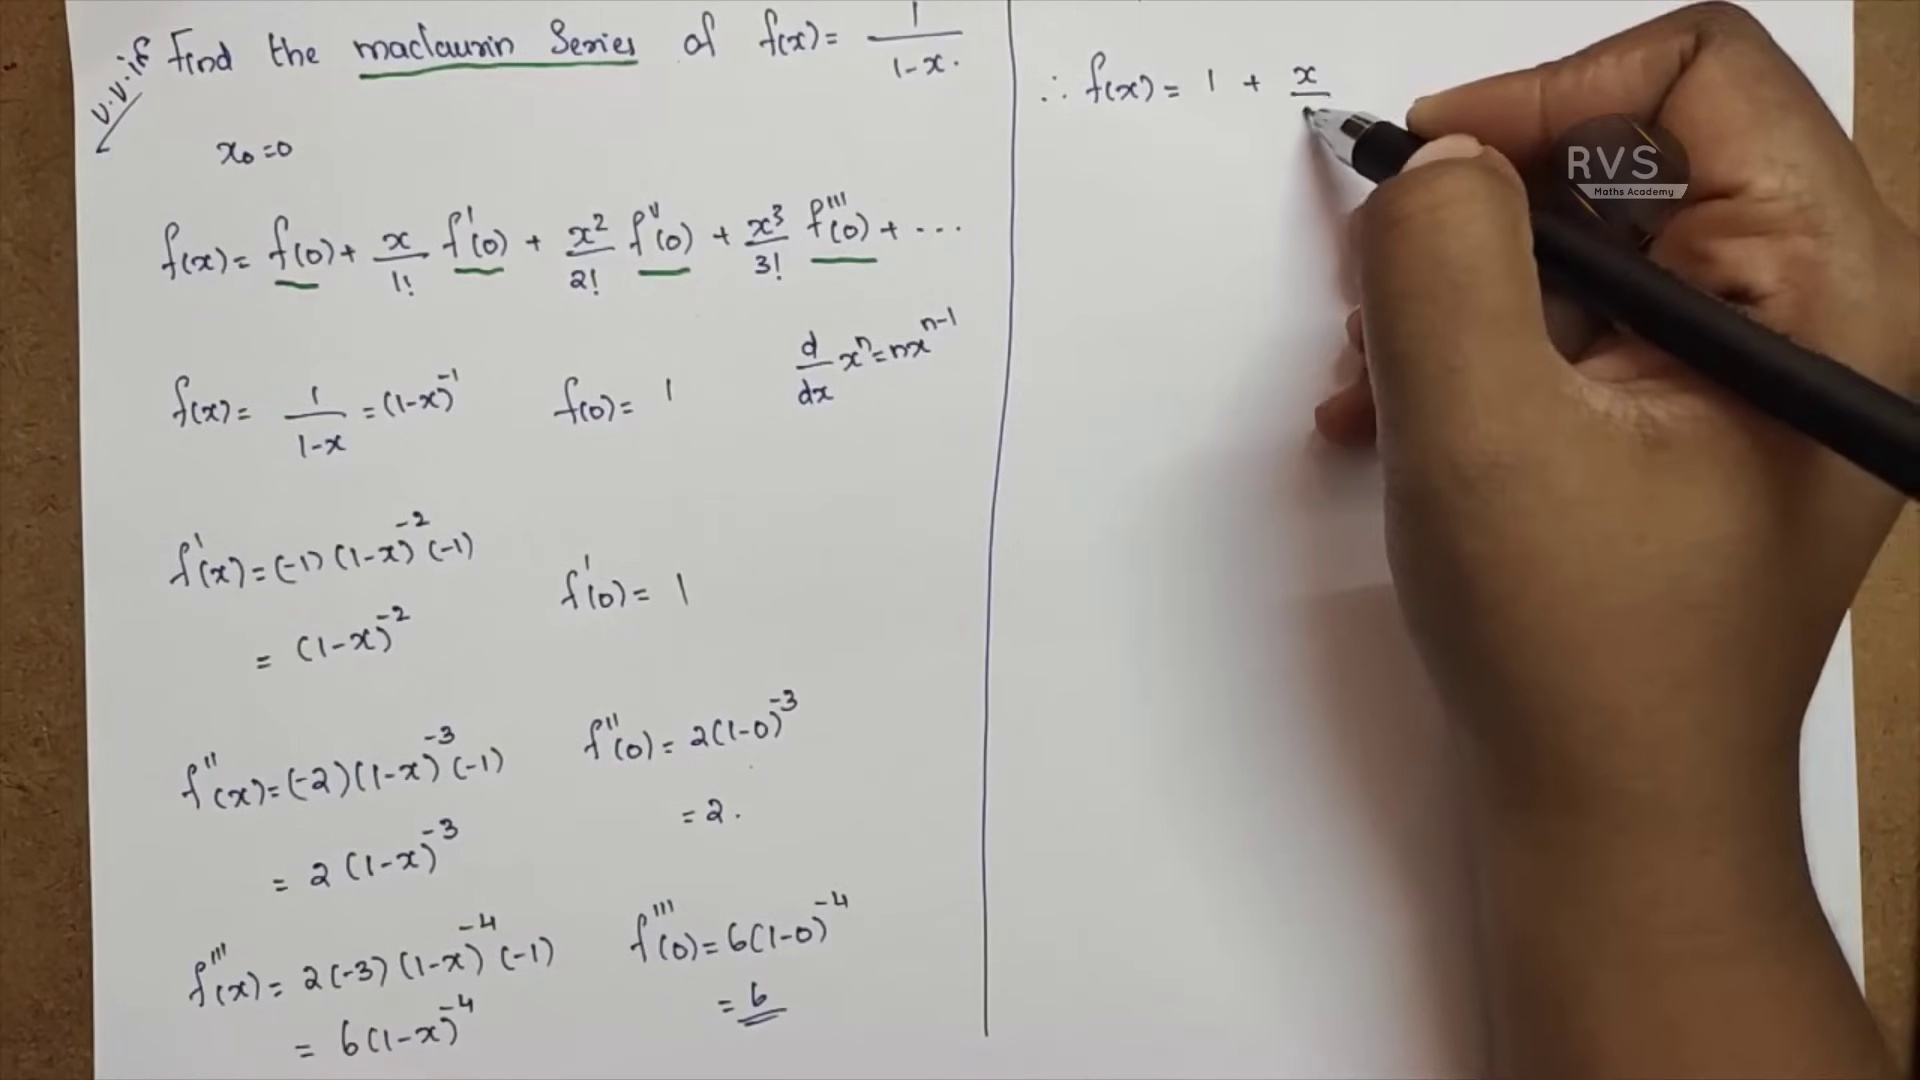 v.v.if Find the maclaurin Series of f(x) = 1/1-x.
x₀=0
f(x) = f(0) + x/1! f'(0) + x²/2! f''(0) + x³/3! f'''(0) + ...
d/dx xⁿ = nxⁿ⁻¹
f(x) = 1/1-x = (1-x)⁻¹ f(0) = 1
f'(x) = (-1)(1-x)⁻²(-1)
f'(0) = 1
= (1-x)⁻²
f''(x) = (-2)(1-x)⁻³(-1) f''(0) = 2(1-0)⁻³
= 2(1-x)⁻³ = 2.
f'''(x) = 2(-3)(1-x)⁻⁴(-1) f'''(0) = 6(1-0)⁻⁴
= 6(1-x)⁻⁴ = 6
∴ f(x) = 1 + x
RVS
Maths Academy